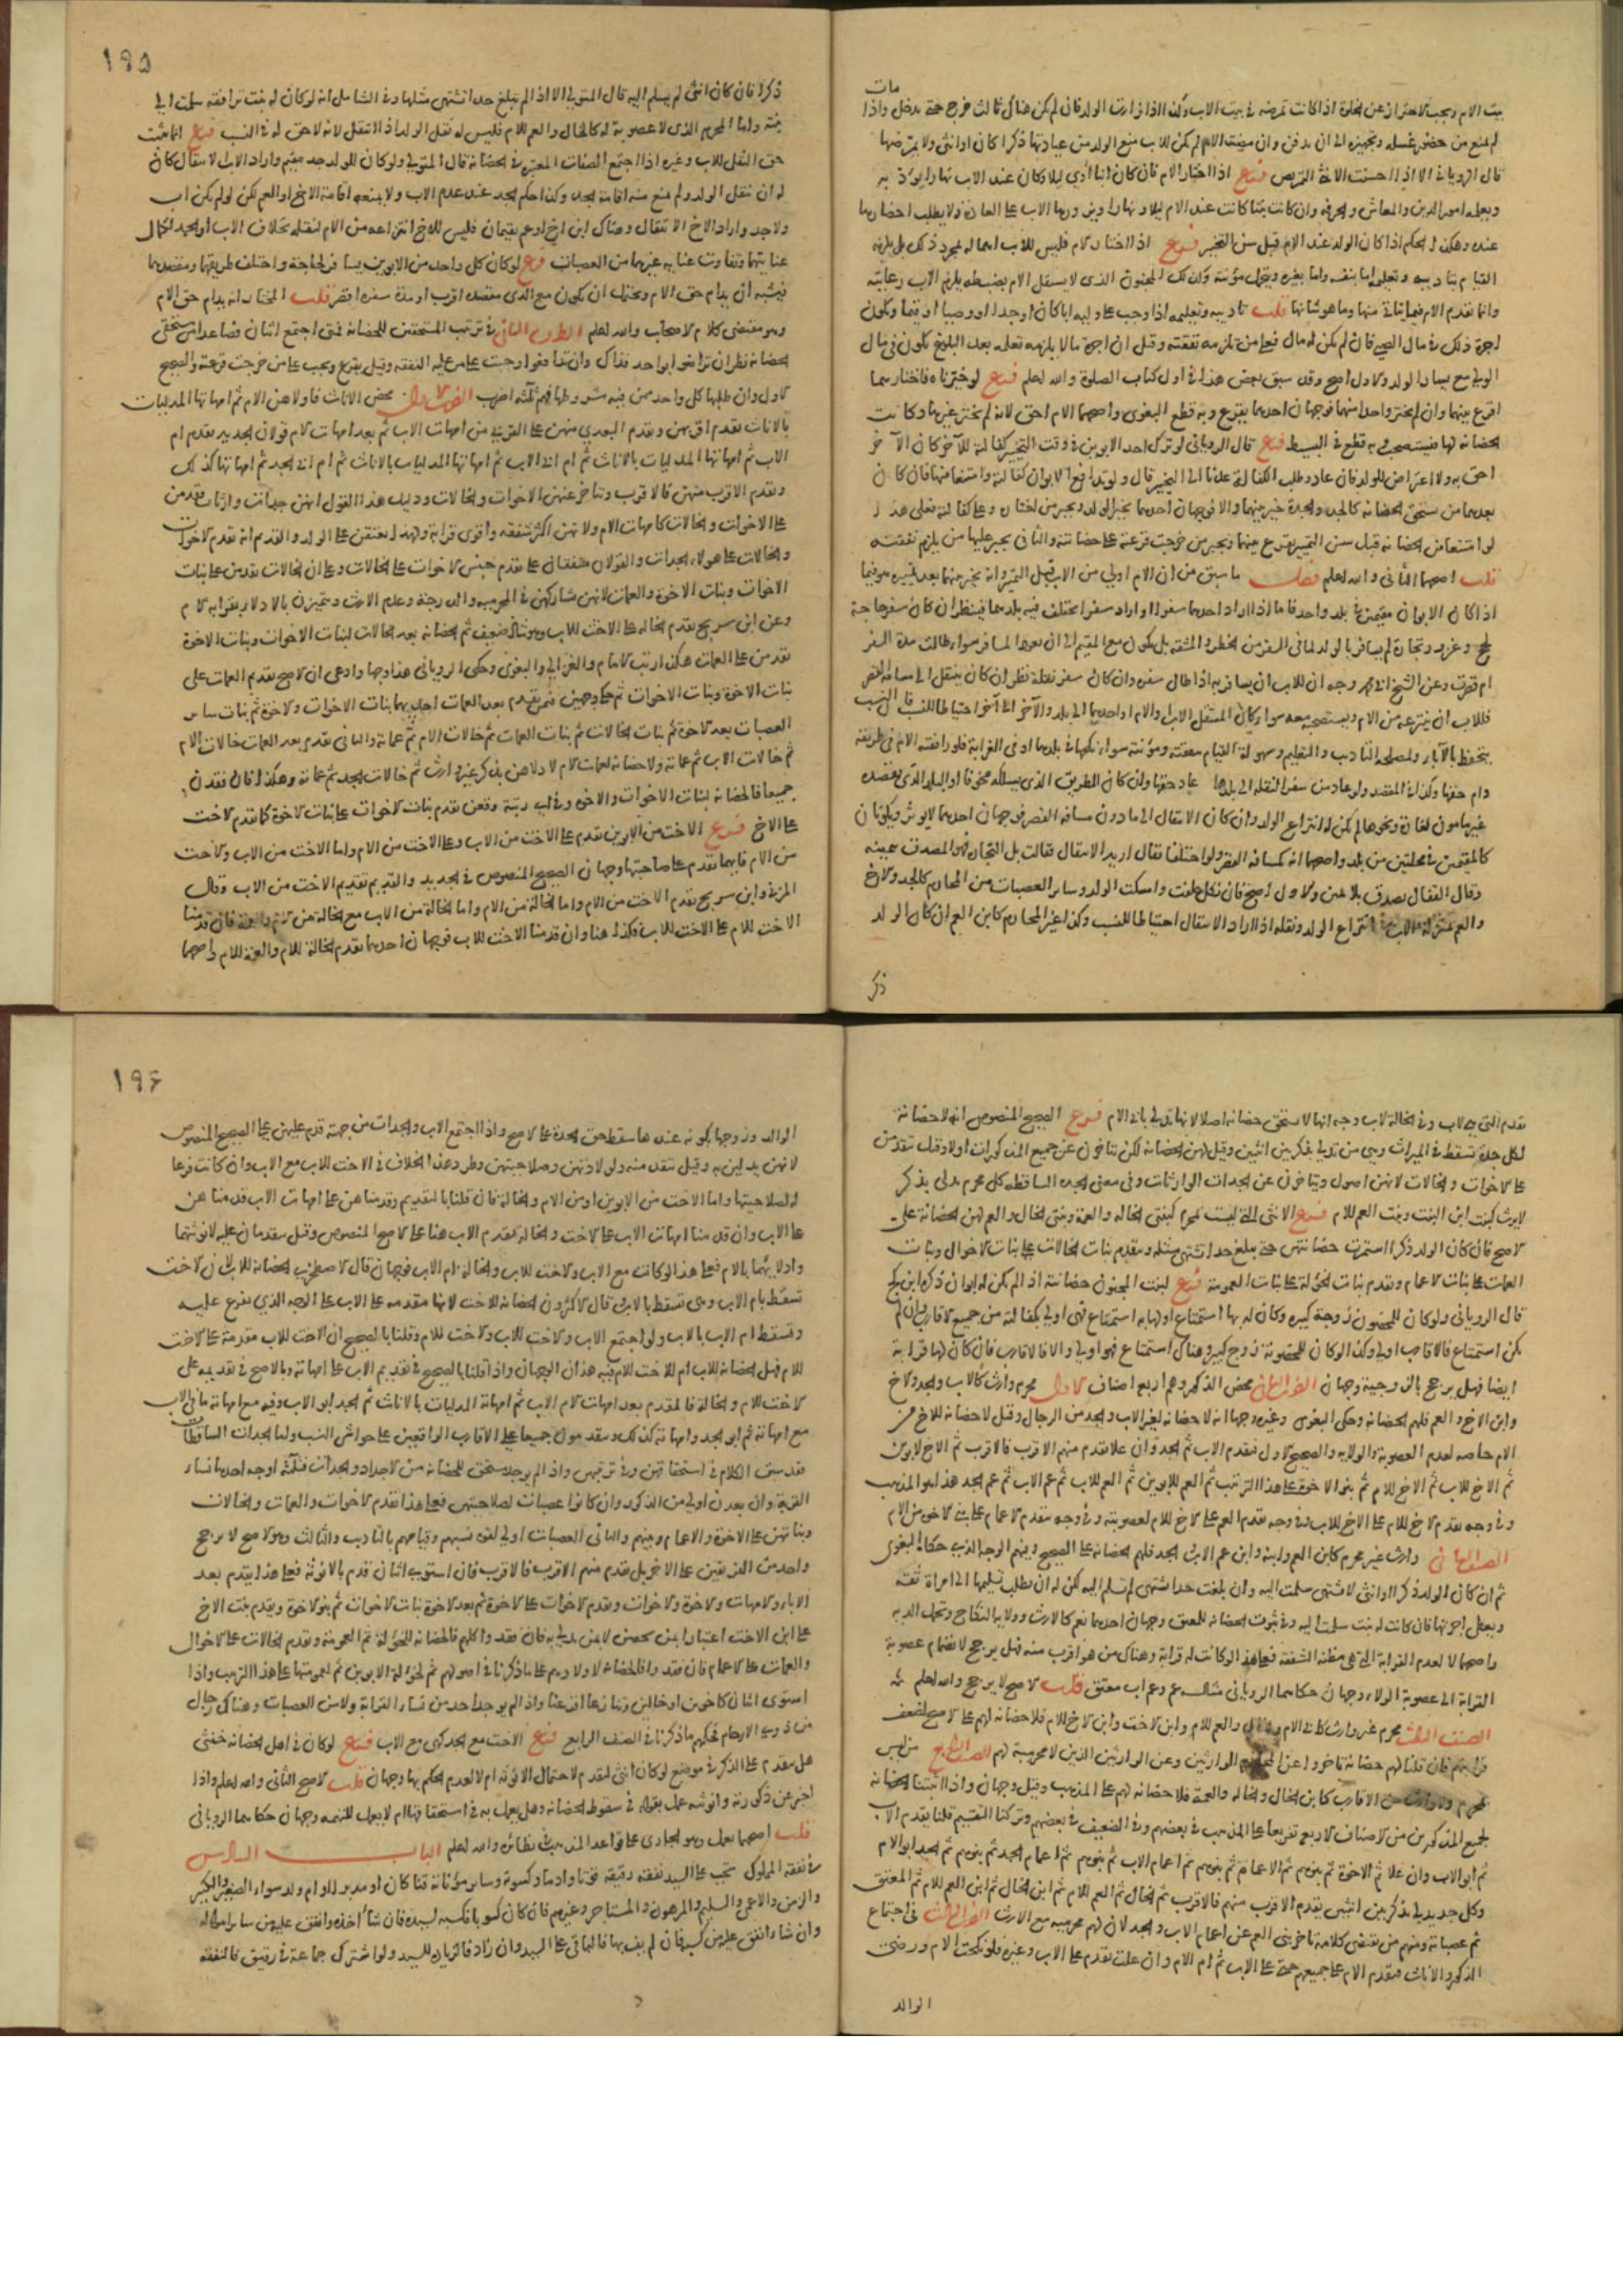 مات
بيت الام ويجب الاحتراز عن الخلوة اذا كانت تمرضه في بيت الاب وكذا اذا زارت الولد فان لم يكن هناك ثالث خرج حتى يدخل واذا
لم تمنع من حضور غسله وتجهيزه الى ان يدفن وان مرضت الام لم يكن للاب منع الولد من عيادتها ذكرا كان او انثى ولا تمرضها
قال الروياني الا اذا احسنت الانثى التمريض فرع اذا اختار الام فان كان ابنا أوى ليلا وكان عند الاب نهارا يؤدبه
ويعلمه امور الدين والمعاش والحرفة وان كانت بنتا كانت عند الام ليلا ونهارا ويزورها الاب على العادة ولا يطلب احضارها
عنده وهكذا الحكم اذا كان الولد عند الام قبل سن التخيير فرع اذا اختار الام فليس للاب اهماله لمجرد ذلك بل يلزمه
القيام بتاديبه وتعليمه اما بنفسه واما بغيره ويتحمل مؤنته وكذلك المجنون الذي لا يستقل الام بضبطه يلزم الاب رعايته
وانما تقدم الام فيما يتاتى منها وما هو شانها قلت تاديبه وتعليمه اذا وجب على وليه ابا كان او جدا او وصيا او قيما وتكون
اجرة ذلك في مال الصبي فان لم يكن له مال فعلى من تلزمه نفقته وقيل ان اجرة ما لا يلزمه تعلمه بعد البلوغ تكون في مال
الولي مع يسار الولد والاول اصح وقد سبق بعض هذا في اول كتاب الصلوة والله اعلم فرع لو خيرناه فاختارهما
اقرع بينهما وان لم يختر واحدا منهما فوجهان احدهما يقرع وبه قطع البغوي واصحهما الام احق لانه لم يختر غيرها وكانت
الحضانة لها فيستصحب وبه قطع في البسيط فرع قال الروياني لو ترك احد الابوين في وقت التخيير كفالته للآخر كان الآخر
احق به ولا اعتراض للولد فان عاد وطلب الكفالة عدنا الى التخيير قال ولو تدافع الابوان كفالته وامتنعا منها فان كان
بعدهما من يستحق الحضانة كالجد والجدة خير بينهما والا فوجهان احدهما يخير الولد ويجبر من اختاره على كفالته فعلى هذا
لو امتنعا من الحضانة قبل سن التمييز يقرع بينهما ويجبر من خرجت قرعته على حضانته والثاني يجبر عليها من يلزم نفقته
قلت اصحهما الثاني والله اعلم فصل ما سبق من ان الام اولى من الاب قبل التمييز وانه يخير بينهما بعد تمييزه هو فيما
اذا كان الابوان مقيمين في بلد واحد فاما اذا اراد احدهما سفرا او اراد سفرا يختلف فيه بلدهما فينظر ان كان سفر حاجة
كحج وغزو وتجارة لم يسافر بالولد لما في السفر من الخطر والمشقة بل يكون مع المقيم الى ان يعود المسافر سواء طالت مدة السفر
ام قصرت وعن الشيخ ابي محمد وجه ان للاب ان يسافر به اذا طال سفره وان كان سفر نقلة نظر ان كان ينتقل الى مسافة القصر
فللاب ان ينتزعه من الام ويستصحبه معه سواء كان المنتقل الاب او الام او احدهما الى بلد والآخر الى آخر احتياطا للنسب فان النسب
يتحفظ بالآباء ولمصلحة التاديب والتعليم وسهولة القيام بنفقته ومؤنته سواء نكحها في بلدهما او في الغربة فلو رافقته الام في طريقه
دام حقها وكذا في المقصد ولو عاد من سفر النقلة الى بلدها عاد حقها ولو كان الطريق الذي يسلكه مخوفا او البلد الذي يقصده
غير مامون لغارة ونحوها لم يكن له انتزاع الولد وان كان الانتقال الى ما دون مسافة القصر فوجهان احدهما لا يؤثر ويكونان
كالمقيمين في محلتين من بلد واصحهما انه كمسافة القصر ولو اختلفا فقال اريد الانتقال فقالت بل التجارة فهو المصدق بيمينه
وقال القفال يصدق بلا يمين والاول اصح فان نكل حلفت وامسكت الولد وسائر العصبات من المحارم كالجد والاخ
والعم بمنزلة الاب في انتزاع الولد ونقله اذا اراد الانتقال احتياطا للنسب وكذا غير المحارم كابن العم ان كان الولد
ذكرا
١٩٥
ذكرا فان كان انثى لم يسلم اليه قال المتولي الا اذا لم تبلغ حدا تشتهى مثلها وفي الشامل انه لو كان له بنت ترافقه سلمت الى
بنته واما المحرم الذي لا عصوبة له كالخال والعم للام فليس له نقل الولد اذا انتقل لانه لا حق له في النسب فرع انما يثبت
حق النقل للاب وغيره اذا اجتمع الصفات المعتبرة في الحضانة قال المتولي ولو كان للولد جد مقيم واراد الاب الانتقال كان
له ان ينقل الولد ولم يمنع منه اقامة الجد وكذا حكم الجد عند عدم الاب ولا يمنعه اقامة الاخ او العم لكن لو لم يكن اب
ولا جد واراد الاخ الانتقال وهناك ابن اخ او عم يقيمان فليس للاخ انتزاعه من الام لنقله بخلاف الاب او الجد لكمال
عنايتهما وتفاوت عناية غيرهما من العصبات فرع لو كان كل واحد من الابوين يسافر لحاجة واختلف طريقهما ومقصدهما
فيشبه ان يدام حق الام ويحتمل ان يكون مع الذي مقصده اقرب او مدة سفره اقصر قلت المختار انه يدام حق الام
وهو مقتضى كلام الاصحاب والله اعلم الطرف الثاني في ترتيب المستحقين للحضانة فمتى اجتمع اثنان فصاعدا من مستحقي
الحضانة نظر ان تراضوا بواحد فذاك وان تدافعوا وجبت على من عليه النفقة وقيل يقرع ويجب على من خرجت قرعته والصحيح
الاول وان طلبها كل واحد ممن فيه شروطها فهم ثلثة اضرب الضرب الاول محض الاناث فاولاهن الام ثم امهاتها المدليات
بالاناث تقدم اقربهن وتقدم البعدى منهن على القربى من امهات الاب ثم بعد امهات الام قولان الجديد تقدم ام
الاب ثم امهاتها المدليات بالاناث ثم ام ابي الاب ثم امهاتها المدليات بالاناث ثم ام ابي الجد ثم امهاتها كذلك
وتقدم الاقرب منهن فالاقرب وتتاخر عنهن الاخوات والخالات ودليل هذا القول انهن جدات وارثات فقدمن
على الاخوات والخالات كامهات الام ولانهن اكثر شفقة واقوى قرابة ولهذا يعتقن على الولد والقديم انه تقدم الاخوات
والخالات على هؤلاء الجدات والقولان متفقان على تقدم جنس الاخوات على الخالات وعلى ان الخالات يقدمن على بنات
الاخوات وبنات الاخوة والعمات لانهن شاركنهن في المحرمية والدرجة وعدم الارث وتميزن بالادلاء بقرابة الام
وعن ابن سريج تقدم الخالة على الاخت للاب وهو شاذ ضعيف ثم الحضانة بعد الخالات لبنات الاخوات وبنات الاخوة
يقدمن على العمات هكذا رتب الامام والغزالي والبغوي وحكى الروياني هذا وجها وادعى ان الاصح تقديم العمات على
بنات الاخوة وبنات الاخوات ثم حكى وجهين فيمن تقدم بعد العمات احدهما بنات الاخوات والاخوة ثم بنات سائر
العصبات بعد الاخوة ثم بنات الخالات ثم بنات العمات ثم خالات الام ثم عماته والثاني تقدم بعد العمات خالات الام
ثم خالات الاب ثم عماته ولا حضانة لعمات الام لادلائهن بذكر غير وارث ثم خالات الجد ثم عماته وهكذا فان فقدن
جميعا فالحضانة لبنات الاخوات والاخوة وفي اي رتبة وقعن تقدم بنات الاخوات على بنات الاخوة كما تقدم الاخت
على الاخ فرع الاخت من الابوين تقدم على الاخت من الاب وعلى الاخت من الام واما الاخت من الاب والاخت
من الام فايهما تقدم على صاحبتها وجهان الصحيح المنصوص في الجديد والقديم تقديم الاخت من الاب وقال
المزني وابن سريج تقدم الاخت من الام واما الخالة من الام واما الخالة من الاب مع الخالة من الام والعمة فان قدمنا
الاخت للام على الاخت للاب فكذا هنا وان قدمنا الاخت للاب فوجهان احدهما تقدم الخالة للام والعمة للام واصحهما
تقدم التي هي للاب وفي الخالة للاب وجه انها لا تستحق حضانة اصلا لانها تدلي بابي الام فرع الصحيح المنصوص انه لا حضانة
لكل جدة تسقط في الميراث وهي من تدلي بذكر بين انثيين وقيل لهن الحضانة لكن يتاخرن عن جميع المذكورات اولا وقيل تتقدمن
على الاخوات والخالات لانهن اصول ويتاخرن عن الجدات الوارثات وفي معنى الجدة الساقطة كل محرم يدلي بذكر
لا يرث كبنت ابن البنت وبنت العم للام فرع الانثى التي ليست بمحرم كبنتي الخالة والعمة وبنتي الخال والعم لهن الحضانة على
الاصح فان كان الولد ذكرا استمرت حضانتهن حتى يبلغ حدا يشتهى مثله وتقدم بنات الخالات على بنات الاخوال وبنات
العمات على بنات الاعمام وتقدم بنات الخؤلة على بنات العمومة فرع لبنت المجنون حضانته اذا لم يكن له ابوان ذكره ابن كج
قال الروياني ولو كان للمحضون زوجة كبيرة وكان له بها استمتاع او لها به استمتاع فهي اولى بكفالته من جميع الاقارب وان لم
يكن استمتاع فالاقارب اولى وكذا لو كان للمحضونة زوج كبير وهناك استمتاع فهو اولى والا فالاقارب فان كان لها قرابة
ايضا فهل يرجح بالزوجية وجهان الضرب الثاني محض الذكور وهم اربع اصناف الاول محرم وارث كالاب والجد والاخ
وابن الاخ والعم فلهم الحضانة وحكى البغوي وغيره وجها انه لا حضانة لغير الاب والجد من الرجال وقيل لا حضانة للاخ من
الام خاصة لعدم العصوبة والولاية والصحيح الاول فيقدم الاب ثم الجد وان علا يقدم منهم الاقرب فالاقرب ثم الاخ لابوين
ثم الاخ للاب ثم الاخ للام ثم بنو الاخوة على هذا الترتيب ثم العم للابوين ثم العم للاب ثم عم الاب ثم عم الجد هذا هو المذهب
وفي وجه يقدم الاخ للام على الاخ للاب وفي وجه تقدم العم على الاخ للام لعصوبته وفي وجه تقدم الاعمام على بني الاخ من الام
الصنف الثاني وارث غير محرم كابن العم وابنه وابن عم الاب والجد فلهم الحضانة على الصحيح وفيهم الوجه الذي حكاه البغوي
ثم ان كان الولد ذكرا او انثى لا تشتهى سلمت اليه وان بلغت حدا تشتهى لم تسلم اليه لكن له ان يطلب تسليمها الى امراة ثقة
ويعطي اجرتها فان كانت له بنت سلمت اليه وفي ثبوت الحضانة للمعتق وجهان احدهما نعم كالارث وولاية النكاح وتحمل الدية
واصحهما لا لعدم القرابة التي هي مظنة الشفقة فعلى هذا لو كانت له قرابة وهناك من هو اقرب منه فهل يرجح لانضمام عصوبة
القرابة الى عصوبة الولاء وجهان حكاهما الروياني مثاله عم وعم اب معتق قلت الاصح لا يرجح والله اعلم
الصنف الثالث محرم غير وارث كابي الام والخال والعم للام وابن الاخت وابن الاخ للام فلا حضانة لهم على الاصح لضعف
قرابتهم فان قلنا لهم حضانة تاخروا عن المحارم الوارثين وعن الوارثين الذين لا محرمية لهم الصنف الرابع من ليس
بمحرم ولا وارث من الاقارب كابن الخال والخالة والعمة فلا حضانة لهم على المذهب وقيل وجهان واذا اثبتنا الحضانة
لجميع المذكورين من الاصناف الاربع تفريعا على المذهب في بعضهم وفي الضعيف في بعضهم وتركنا التقسيم قلنا يقدم الاب
ثم ابو الاب وان علا ثم الاخوة ثم بنوهم ثم الاعمام ثم بنوهم ثم اعمام الاب ثم بنوهم ثم اعمام الجد ثم بنوهم ثم الجد ابو الام
وكل جد يدلي بذكر بين انثيين يقدم الاقرب منهم فالاقرب ثم الخال ثم العم للام ثم ابن الخال ثم ابن العم للام ثم المعتق
ثم عصباته ومنهم من يقتضي كلامه تاخر بني العم عن اعمام الاب والجد لان لهم محرمية مع الارث الضرب الثالث في اجتماع
الذكور والاناث فتقدم الام على جميعهم حتى على الاب ثم ام الام وان علت تقدم على الاب وغيره فلو نكحت الام ورضي
الوالد
١٩۶
الوالد وزوجها بكونه عندها سقط حق الجدة على الاصح واذا اجتمع الاب والجدات من جهته قدم عليهن على الصحيح المنصوص
لانهن يدلين به وقيل تتقدمنه ولولادتهن وصلاحيتهن وطرد هذا الخلاف في الاخت للاب مع الاب وان كانت فرعا
له لصلاحيتها واما الاخت من الابوين او من الام والخالة فان قلنا بالتقديم وقدمناهن على امهات الاب قدمناهن
على الاب وان قدمنا امهات الاب على الاخت والخالة تقدم الاب هنا على الاصح المنصوص وقيل يقدمان عليه لانوثتهما
وادلائهما بالام فعلى هذا لو كانت مع الاب والاخت للاب والخالة ام الاب فوجهان قال الاصطخري الحضانة للاب لان الاخت
تسقط بام الاب وهي تسقط بالاب وقال الاكثرون الحضانة للاخت لانها مقدمة على الاب على الوجه الذي تفرع عليه
وتسقط ام الاب بالاب ولو اجتمع الاب والاخت للاب والاخت للام وقلنا بالصحيح ان الاخت للاب مقدمة على الاخت
للام فهل الحضانة للاب ام للاخت للام فيه هذان الوجهان واذا قلنا بالصحيح في تقديم الاب على امهاته وبالاصح في تقديمه على
الاخت للام والخالة فالمقدم بعد امهات الام الاب ثم امهاته المدليات بالاناث ثم الجد ابو الاب وفيه مع امهاته ما في الاب
مع امهاته ثم ابو الجد وامهاته كذلك ويقدمون جميعا على الاقارب الواقعين على حواشي النسب واما الجدات الساقطات
فقد سبق الكلام في استحقاقهن وفي ترتيبهن واذا لم يوجد مستحق للحضانة من الاجداد والجدات فثلثة اوجه احدها نساء
القرابة وان بعدن اولى من الذكور وان كانوا عصبات لصلاحيتهن فعلى هذا تقدم الاخوات والعمات والخالات
وبناتهن على الاخوة والاعمام وبنيهم والثاني العصبات اولى لقوة نسبهم وقيامهم بالتاديب والثالث وهو الاصح لا يرجح
واحد من الفريقين على الآخر بل يقدم منهم الاقرب فالاقرب فان استوى اثنان قدم بالانوثة فعلى هذا يقدم بعد
الاباء والامهات والاخوة والاخوات وتقدم الاخوات على الاخوة ثم بعد الاخوة بنات الاخوات ثم بنو الاخوة وتقدم بنت الاخ
على ابن الاخت اعتبارا بمن يحضن لا بمن يدلي به فان فقدوا كلهم فالحضانة للخؤلة ثم العمومة وتقدم الخالات على الاخوال
والعمات على الاعمام فان فقدوا فالحضانة لاولادهم على ما ذكرنا في اصولهم ثم لخؤلة الابوين ثم لعمومتهما على هذا الترتيب واذا
استوى اثنان كاخوين او خالتين وتنازعا اقرعنا واذا لم يوجد احد من نساء القرابة ولا من العصبات وهناك رجال
من ذوي الارحام فحكمهم ما ذكرنا في الصنف الرابع فرع الاخت مع الجد كهي مع الاب فرع لو كان في اهل الحضانة خنثى
هل يتقدم على الذكر في موضع لو كان انثى لتقدم لاحتمال الانوثة ام لا لعدم الحكم بها وجهان قلت الاصح الثاني والله اعلم واذا
اخبر عن ذكورته وانوثته عمل بقوله في سقوط الحضانة وهل يعمل به في استحقاقها ام لا يعمل للتهمة وجهان حكاهما الروياني
قلت اصحهما يعمل وهو الجاري على قواعد المذهب في نظائره والله اعلم الباب السادس
في نفقة المملوك تجب على السيد نفقة رقيقه قوتا وادما وكسوة وسائر مؤناته قنا كان او مدبرا او ام ولد سواء الصغير والكبير
والزمن والاعمى والسليم والمرهون والمستاجر وغيرهم فان كان كسوبا فكسبه لسيده فان شاء اخذه وانفق عليه من سائر امواله
وان شاء انفق عليه من كسبه فان لم يف بها فالباقي على السيد وان زاد فالزيادة للسيد ولو اشترك جماعة في رقيق فالنفقة